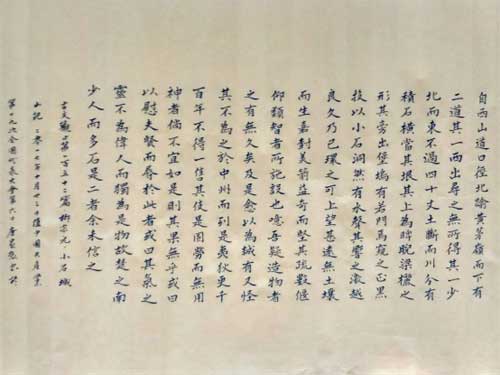 自西山道口徑北踰黃茅嶺而下有
二道其一西出尋之無所得其一少
北而東不過四十丈土斷而川分有
積石橫當其垠其上為睥睨梁欐之
形其旁出堡塢有若門焉窺之正黑
投以小石洞然有水聲其響之激越
良久乃已環之可上望甚遠無土壤
而生嘉樹美箭益奇而堅其疏數偃
仰類智者所施設也噫吾疑造物者
之有無久矣及是愈以為誠有又怪
其不為之於中州而列是夷狄更千
百年不得一售其伎是固勞而無用
神者倘不宜如是則其果無乎或曰
以慰夫賢而辱於此者或曰其氣之
靈不為偉人而獨為是物故楚之南
少人而多石是二者余未信之
古文觀止第一百五十二篇柳宗元小石城
山記二零一七年十月廿三日值中國共產黨
第十九次全國代表大會第六日